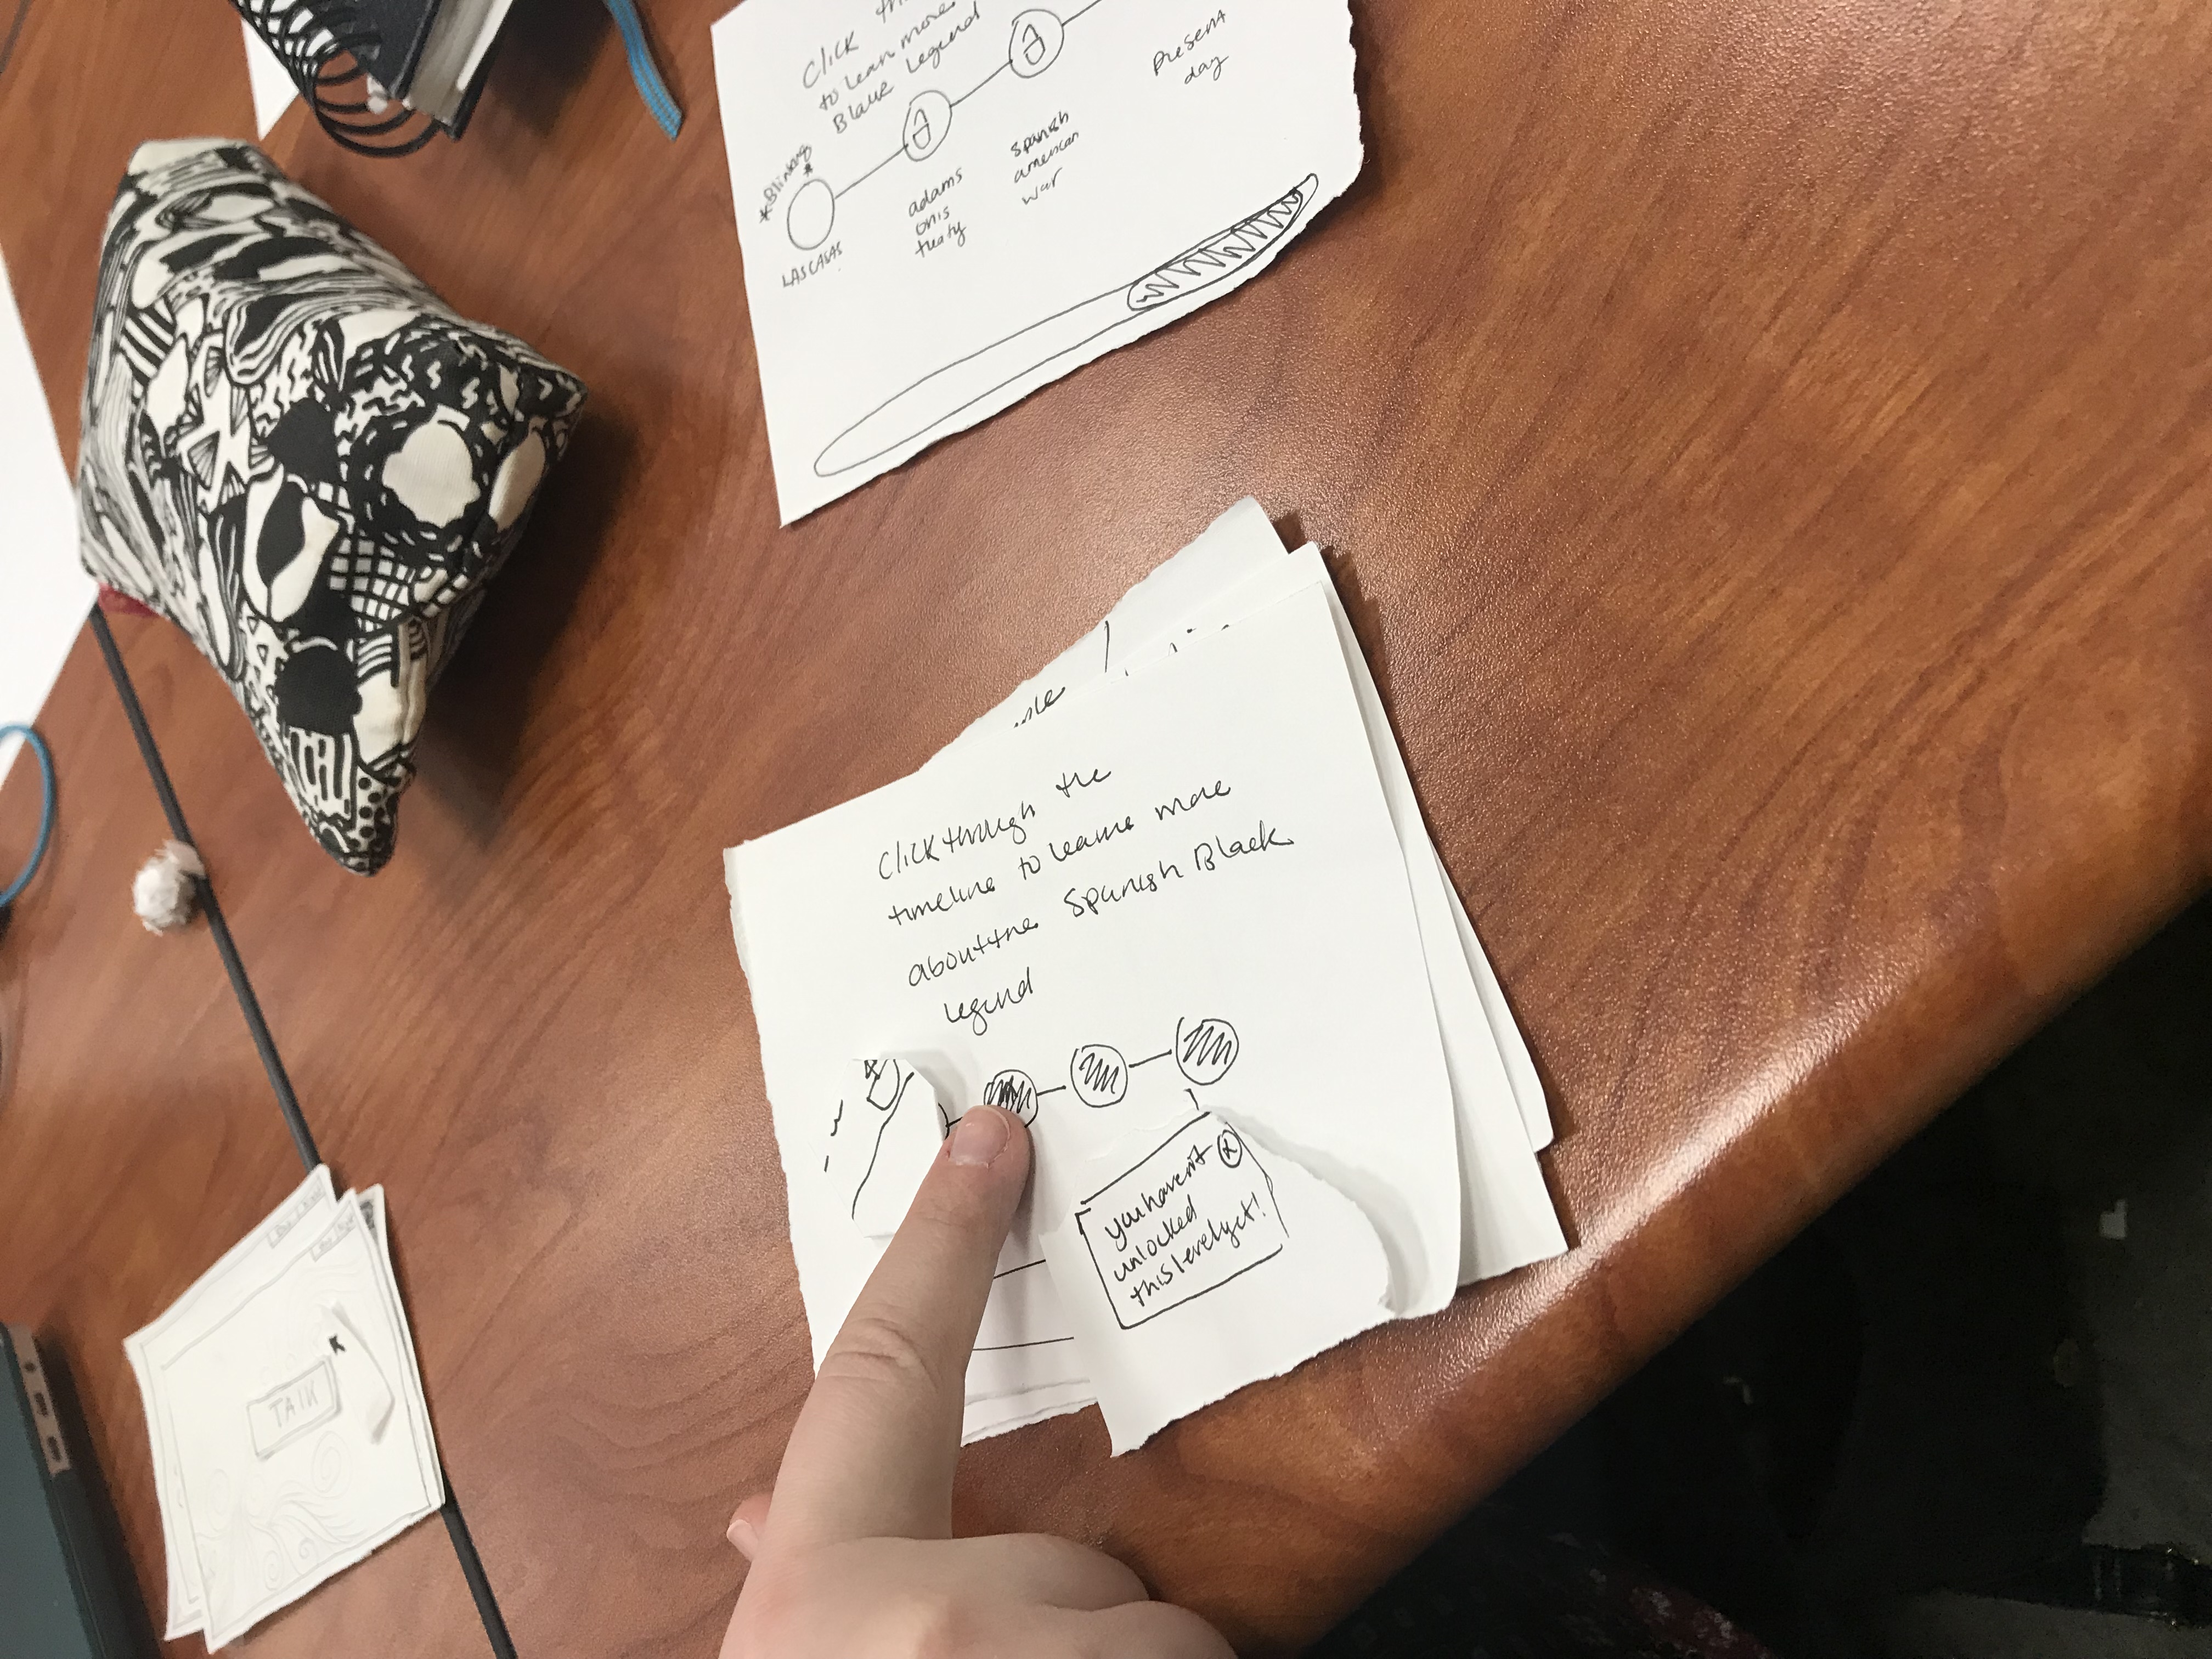 TALK
Click through the
timeline to learne more
about the Spanish Black
legend
you havent
unlocked
this level yet!
*Blinking*
LASCASAS
Click
to lean more
Blaue legend
adams
onis
treaty
spanish
american
war
present
day